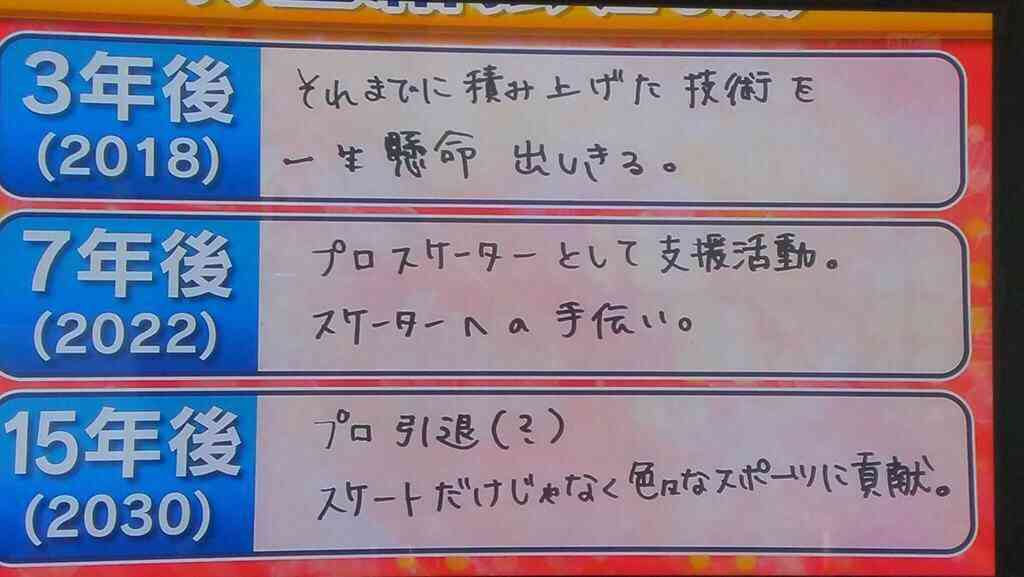 3年後
(2018)
それまでに積み上げた技術を
一生懸命出しきる。
7年後
(2022)
プロスケーターとして支援活動。
スケーターへの手伝い。
15年後
(2030)
プロ引退(?)
スケートだけじゃなく色々なスポーツに貢献。